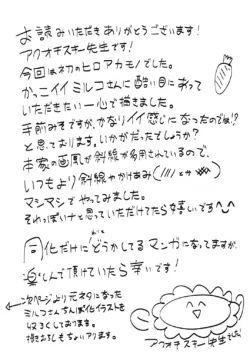 お読みいただきありがとうございます!
アクオチスキー先生です!
今回は初のヒロアカモノでした。
かっこイイミルコさんに酷い目にあって
いただきたい一心で描きました。
手前みそですが、かなりイイ感じになったのでは!?
と思っております。いかがだったでしょうか?
本家の画風が斜線が多用されているので、
いつもより斜線やかけあみ(
マシマシでやってみました。
それっぽいナと思っていただけてたら嬉しいです
同化だけにどうかしてるマンガになってますが、
楽しんで頂けていたら幸いです!
←次ページより元ネタになった
ミルコさんちんぽ化イラストを
収ろくしております。
描きおろしもちょいアリます。
アクオチスキー先生でした!